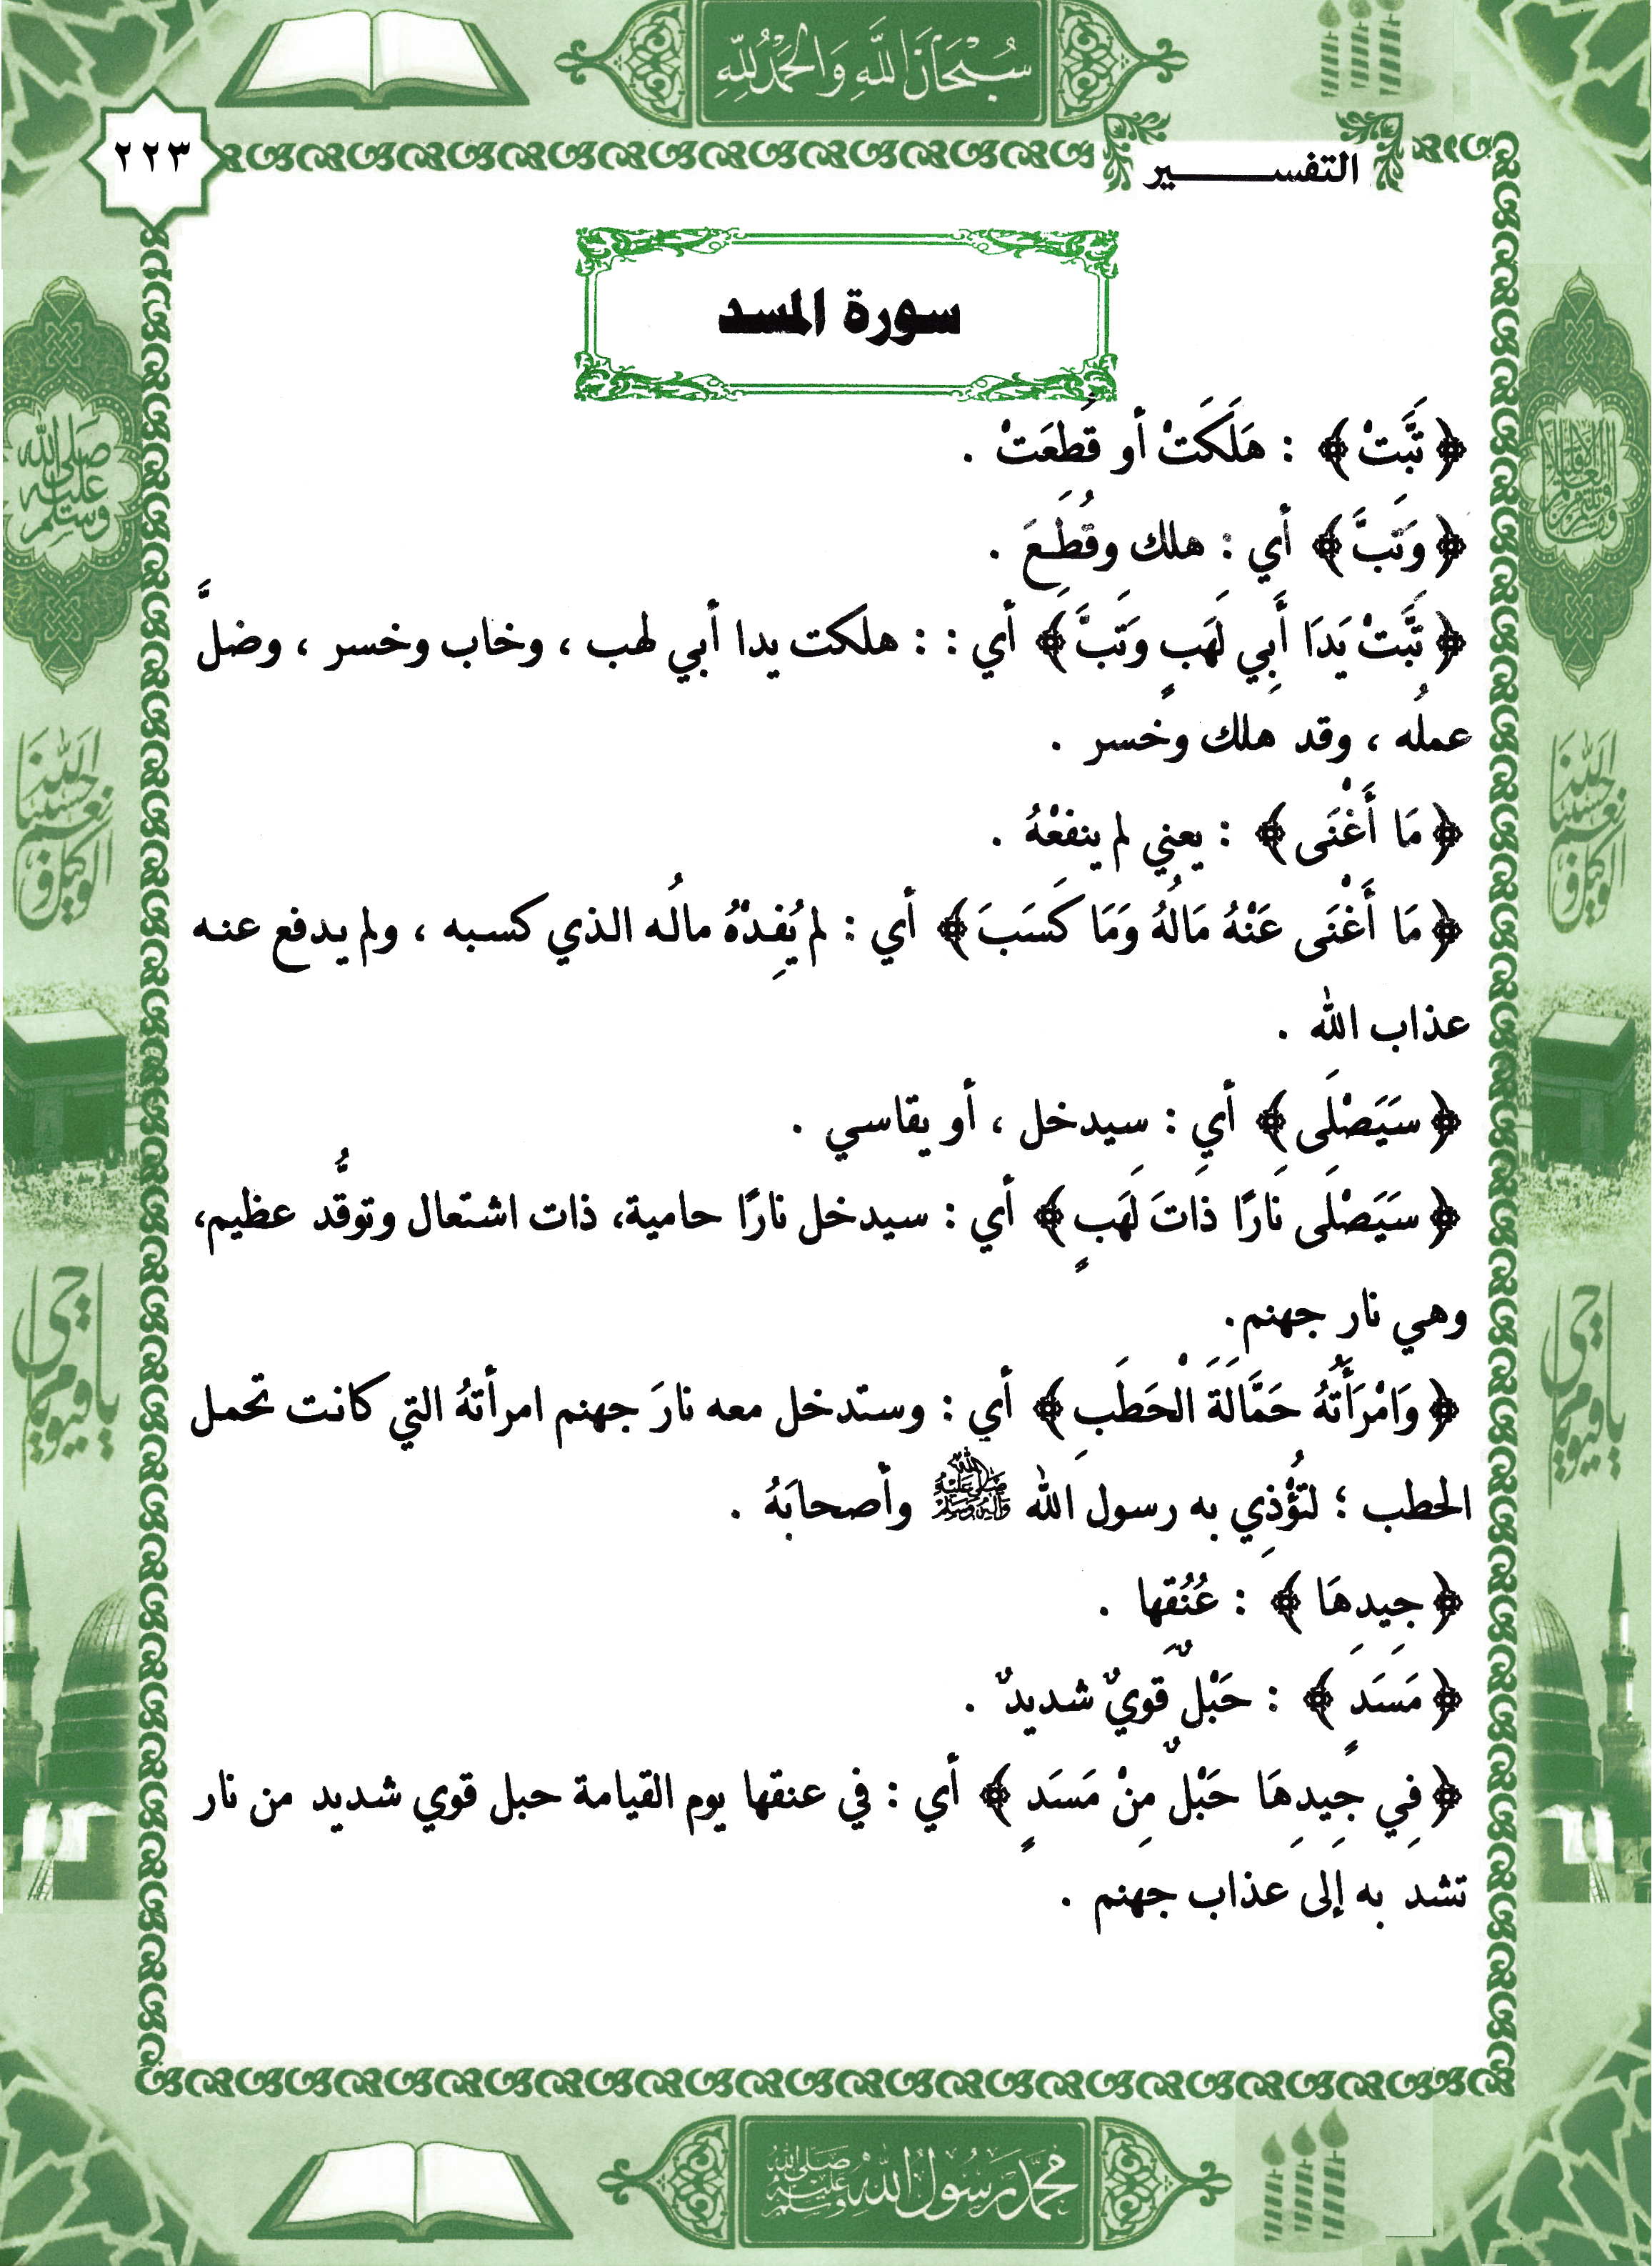 سُبْحَانَ اللَّهِ وَالْحَمْدُ لِلَّهِ
٢٢٣
التفسـير
سورة المسد
﴿تَبَّتْ﴾ : هَلَكَتْ أو قُطِعَتْ .
﴿وَتَبَّ﴾ أي : هلك وقُطِعَ .
﴿تَبَّتْ يَدَا أَبِي لَهَبٍ وَتَبَّ﴾ أي : : هلكت يدا أبي لهب ، وخاب وخسر ، وضلَّ
عملُه ، وقد هلك وخسر .
﴿مَا أَغْنَى﴾ : يعني لم ينفعْهُ .
﴿مَا أَغْنَى عَنْهُ مَالُهُ وَمَا كَسَبَ﴾ أي : لم يُفِدْهُ مالُه الذي كسبه ، ولم يدفع عنه
عذاب الله .
﴿سَيَصْلَى﴾ أي : سيدخل ، أو يقاسي .
﴿سَيَصْلَى نَارًا ذَاتَ لَهَبٍ﴾ أي : سيدخل نارًا حامية، ذات اشتعال وتوقُّد عظيم،
وهي نار جهنم.
﴿وَامْرَأَتُهُ حَمَّالَةَ الْحَطَبِ﴾ أي : وستدخل معه نارَ جهنم امرأتهُ التي كانت تحمل
الحطب ؛ لتُؤْذِي به رسول الله ﷺ وأصحابَهُ .
﴿جِيدِهَا﴾ : عُنُقِها .
﴿مَسَدٍ﴾ : حَبْلٌ قَويٌ شديدٌ .
﴿فِي جِيدِهَا حَبْلٌ مِنْ مَسَدٍ﴾ أي : في عنقها يوم القيامة حبل قوي شديد من نار
تشد به إلى عذاب جهنم .
صلى الله
عليه
وسلم
حسبنا الله
ونعم
الوكيل
يا حي
يا قيوم
محمد رسول الله صلى الله عليه وسلم